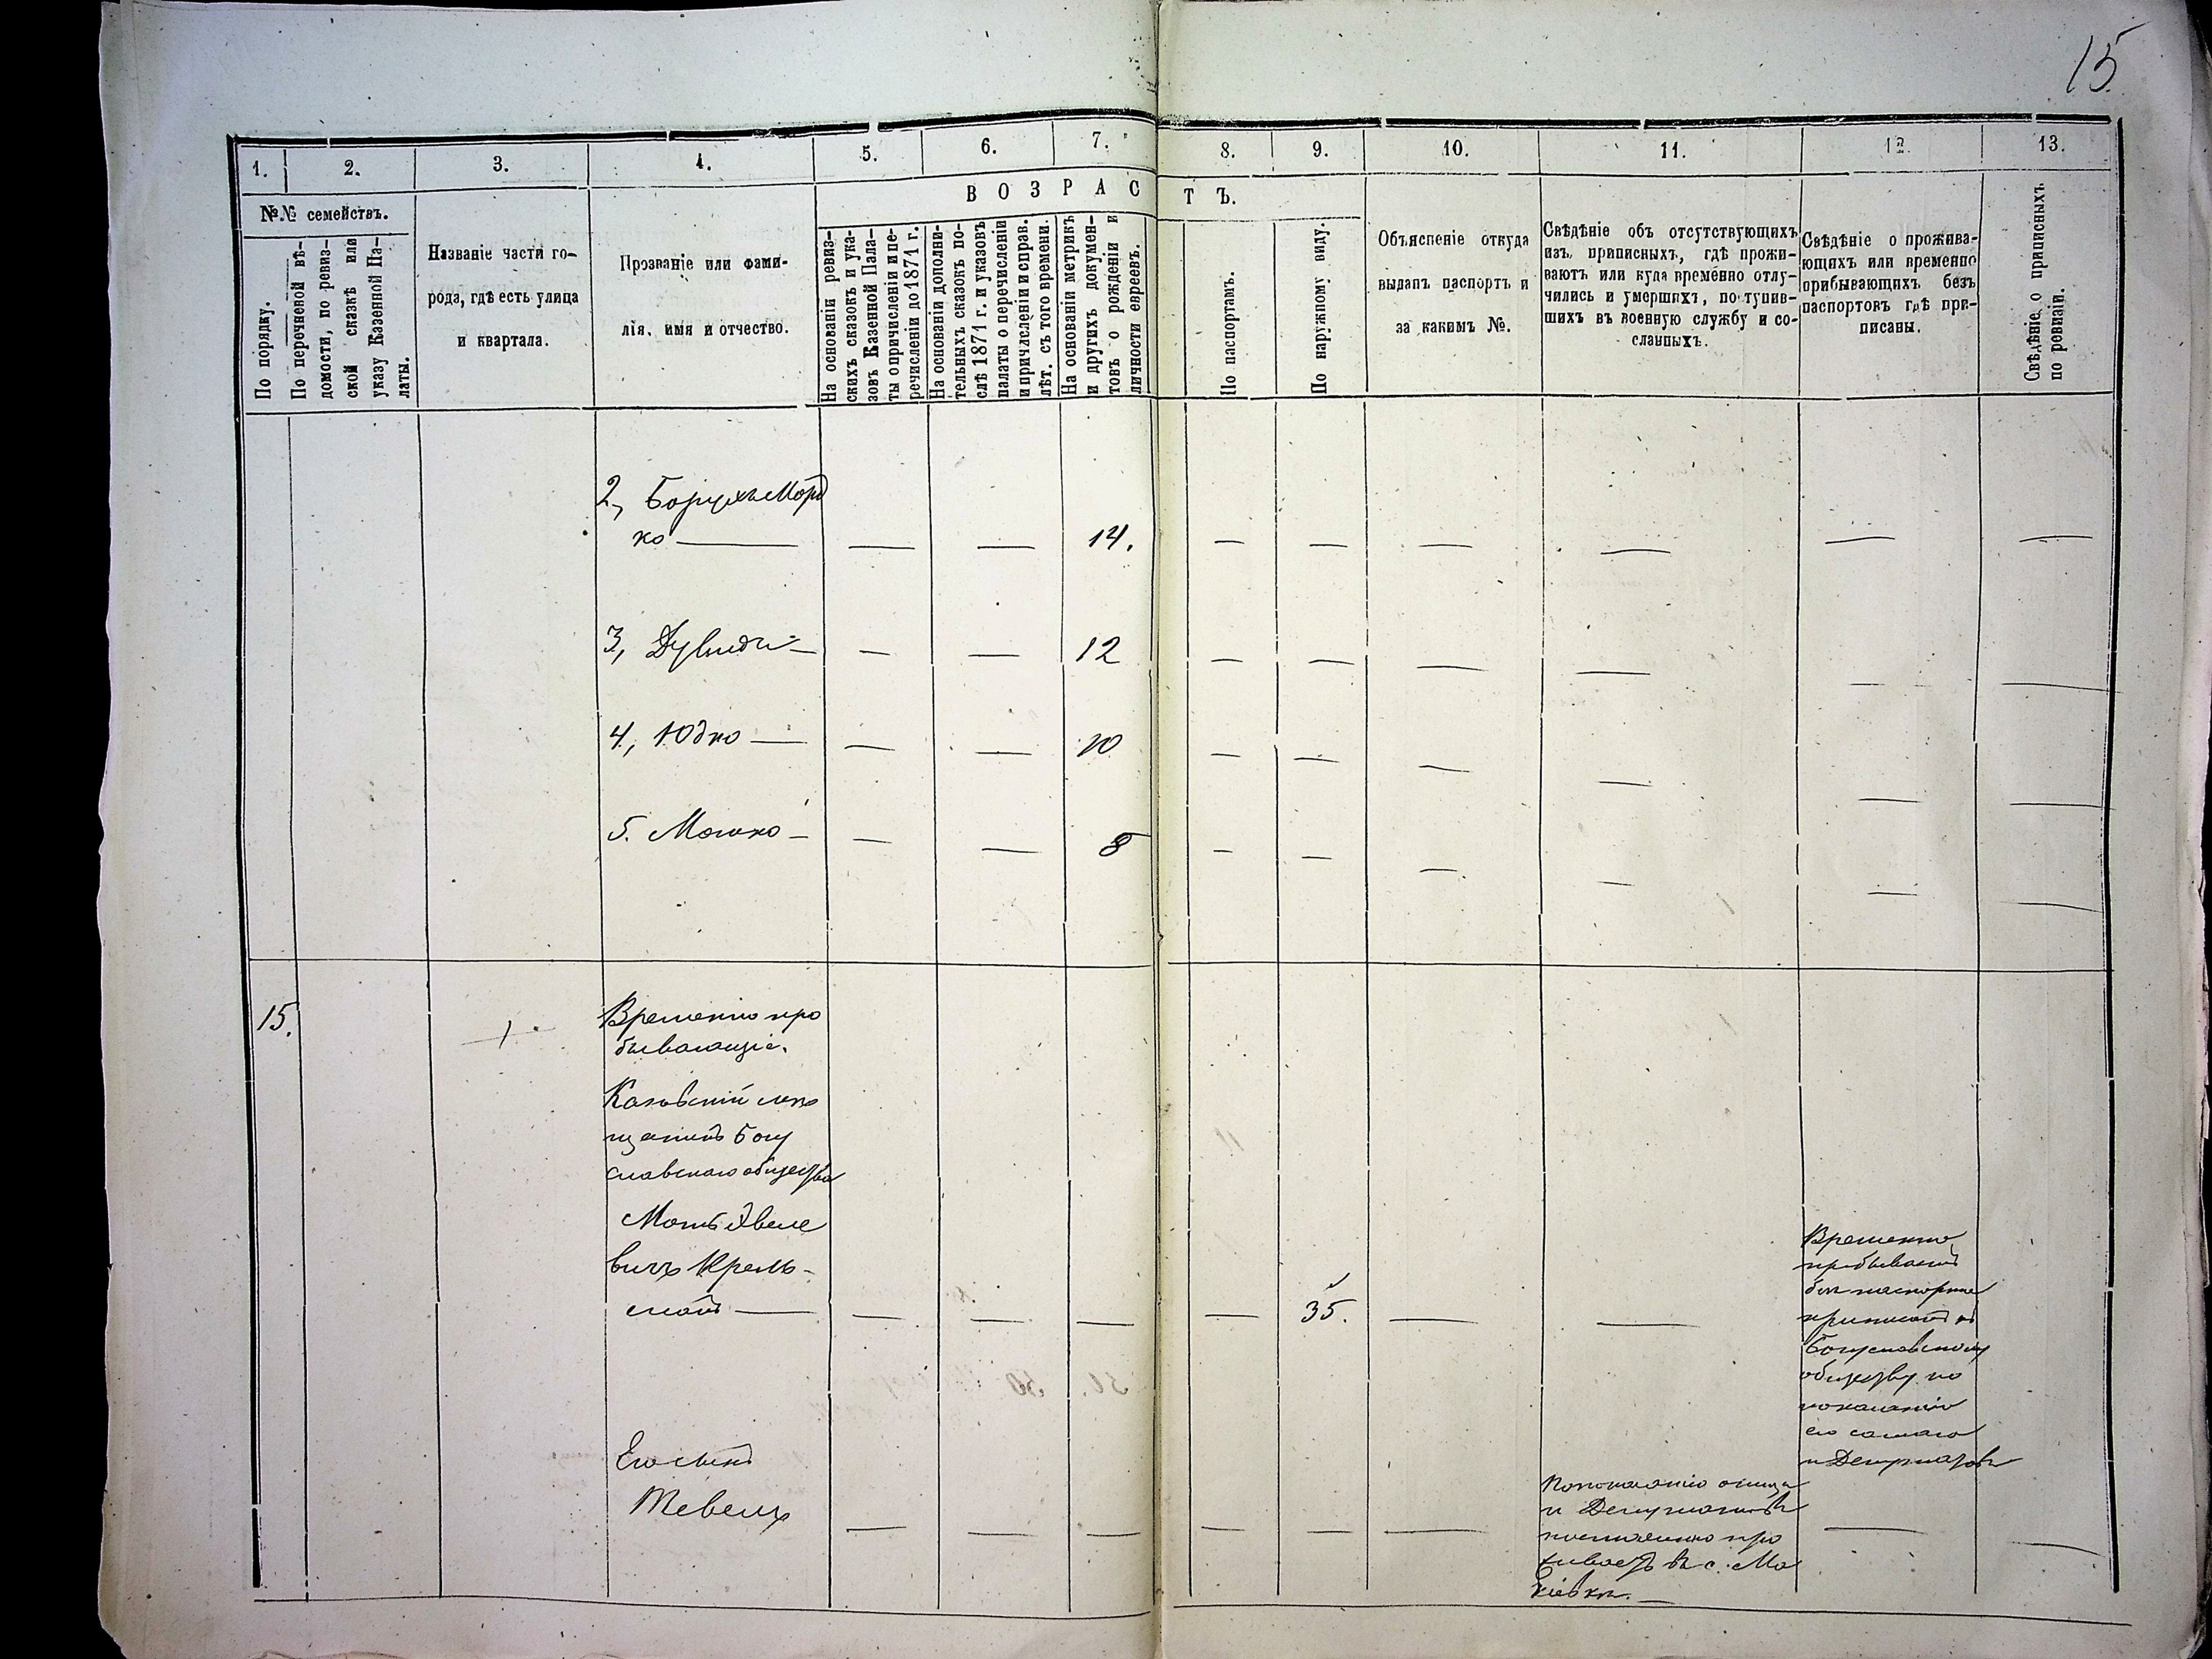 15.
1.
2.
3.
4.
5.
6.
7.
8.
9.
10.
11.
12.
13.
№№ семействъ.
ВОЗРАСТЪ.
По порядку.
По перечневой вѣ-
домости, по ревиз-
ской сказкѣ или
указу Казенной Па-
латы.
Названіе части го-
рода, гдѣ есть улица
и квартала.
Прозваніе или фами-
лія, имя и отчество.
На основаніи ревиз-
скихъ сказокъ и ука-
зовъ Казенной Пала-
ты о причисленіи и пе-
речисленіи до 1871 г.
На основаніи дополни-
тельныхъ сказокъ по-
слѣ 1871 г. и указовъ
палаты о перечисленіи
и причисленіи и справ.
лѣт. съ того времени.
На основаніи метрикъ
и другихъ докумен-
товъ о рожденіи и
личности евреевъ.
По паспортамъ.
По наружному виду.
Объясненіе откуда
выданъ паспортъ и
за какимъ №.
Свѣдѣніе объ отсутствующихъ
изъ приписныхъ, гдѣ прожи-
ваютъ или куда временно отлу-
чились и умершихъ, поступив-
шихъ въ военную службу и со-
сланныхъ.
Свѣдѣніе о прожива-
ющихъ или временно
прибывающихъ безъ
паспортовъ гдѣ при-
писаны.
Свѣдѣніе о приписныхъ
по ревизіи.
2, Борухъ Морд
ко — — — 14. — — — — — —
3, Дувидъ — — — 12 — — — — — —
4, Юдко — — — 10 — — — — — —
5. Мошко — — — 8 — — — — — —
15.
Временно про
бывающіе.
Каневскій мѣ
щанинъ Богу
славскаго общества
Евеле
вичъ
— — — — — 35. — —
Временно
пребываетъ
безъ паспорта
приписанъ къ
Богуславскому
обществу по
показанію
его самаго
и Депутатовъ
Его сынъ
Тевель — — — — — —
По показанію отца
и Депутатовъ
постоянно про
живаетъ въ с. Ма
кіевкѣ. — — —